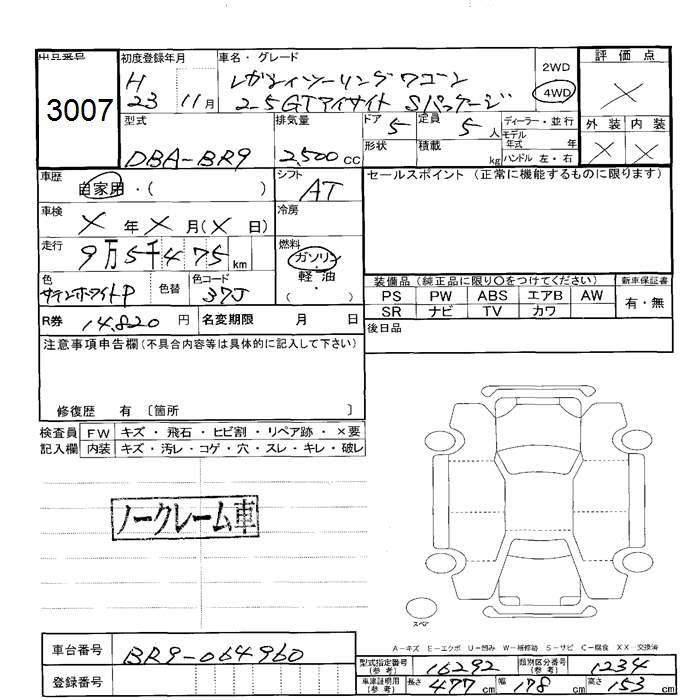 出品番号
3007
初度登録年月
H
23 11月
車名・グレード
レガシィツーリングワゴン
2-5GTアイサイト Sパッケージ
2WD
4WD
評価点
×
外装 内装
× ×
型式
DBA-BR9
排気量
2,500 cc
ドア 5
形状
定員 5 人
積載 kg
ディーラー・並行
モデル
年式 年
ハンドル 左・右
車歴
自家用・( )
シフト
AT
セールスポイント(正常に機能するものに限ります)
車検
× 年 × 月(× 日)
冷房
走行
9万5千475 km
燃料
ガソリン
軽油
( ・ )
色
サテンホワイトP
色替
色コード
37J
装備品(純正品に限り○をつけてください)
新車保証書
PS PW ABS エアB AW
SR ナビ TV カワ
有・無
R券 14,820 円
名変期限 月 日
後日品
注意事項申告欄(不具合内容等は具体的に記入して下さい)
修復歴 有 〔箇所 〕
検査員
記入欄
FW キズ・飛石・ヒビ割・リペア跡・×要
内装 キズ・汚レ・コゲ・穴・スレ・キレ・破レ
ノークレーム車
スペア
A-キズ E-エクボ U-凹み W-補修跡 S-サビ C-腐食 XX-交換済
車台番号
BR9-064960
登録番号
型式指定番号
(参考)
16292
類別区分番号
(参考)
1234
車庫証明用
(参考)
長さ 477 cm 幅 178 cm 高さ 153 cm